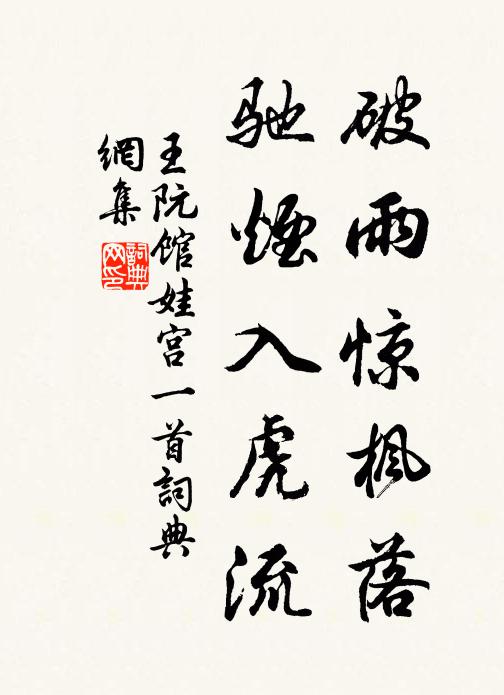 破雨惊枫落
驰烟入虎流
王阮馆娃宫一首詞典
網集
詞典网印